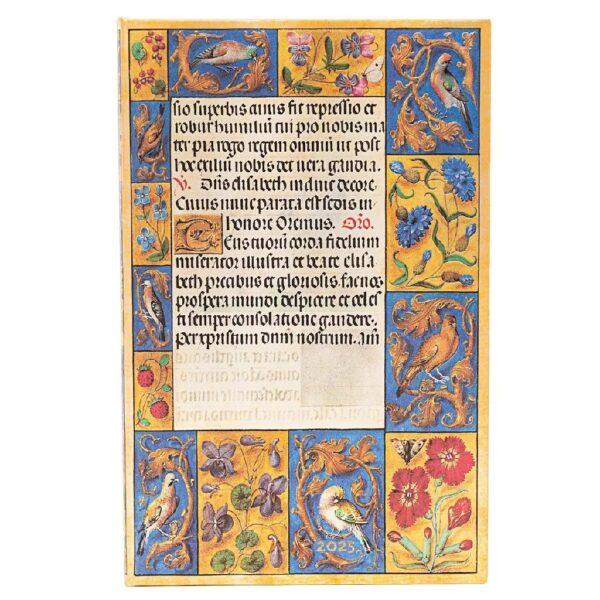 sio superbis cuius fit repressio et
robur humiliū cui pro nobis ma
ter pia rogo regem omniū ut post
hoc exiliū nobis det uera gaudia.
V. Dn̄s elisabeth induit decore.
Cuius nunc parata est sedis in
honore Oremus. Oro.
Deus tuorū corda fidelium
miserator illustra et beate elisa
beth precibus et gloriosis. fac nos
prospera mundi despicere et celes
ti semper consolatione gaudere.
Per xpristum dnm nostrum. am
2025